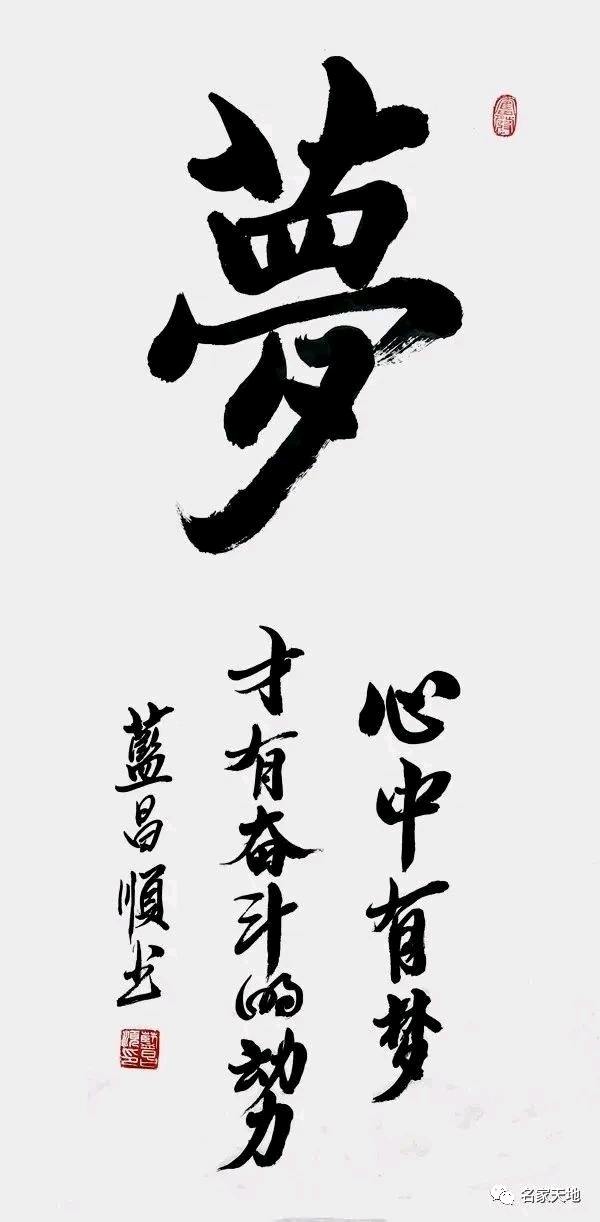 夢
心中有梦
才有奋斗的动力
藍昌順书
名家天地